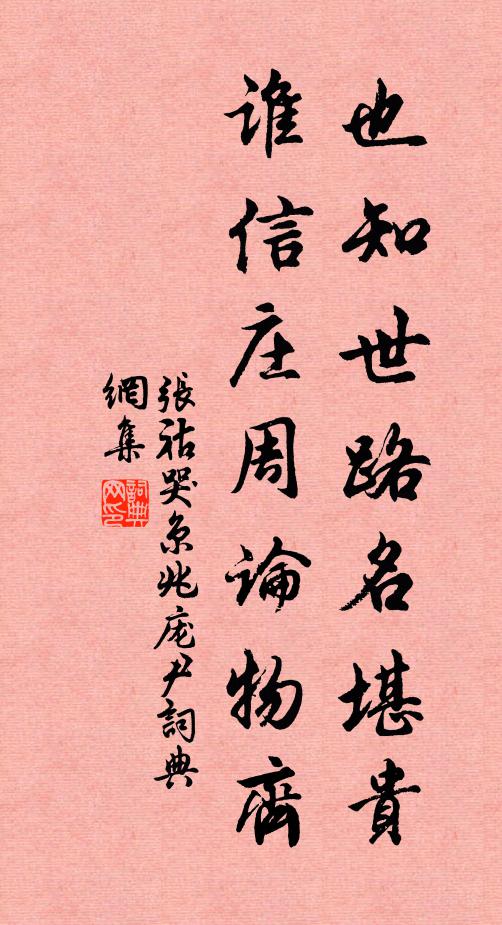 也知世路名堪貴
誰信庄周論物齊
張祜哭京兆庞尹詞典
網集
詞典
网印